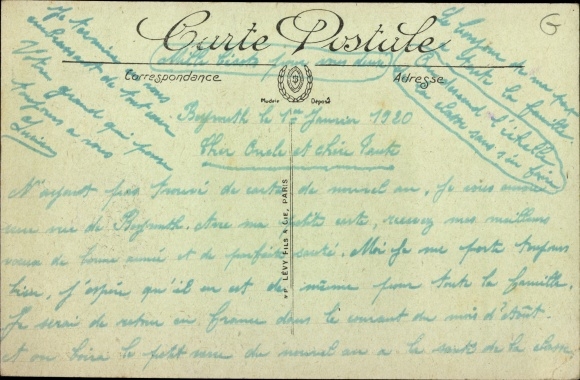 Carte Postale
Correspondance
Adresse
Modèle Déposé
Beyrouth le 1er Janvier 1920
Cher Oncle et chère Tante
N'ayant pas trouvé de cartes de nouvel an, je vous envoie
une vue de Beyrouth. Avec ma petite carte, recevez mes meilleurs
vœux de bonne année et de parfaite santé. Moi je me porte toujours
bien, j'espère qu'il en est de même pour toute la famille.
Je serai de retour en France dans le courant du mois d'Août.
et on boira le petit verre du nouvel an a la santé de la classe
Je termine en vous
embrassant de tout cœur
Votre grand qui pense
toujours a vous
Lucien
Le bonjour de ma part
a toute la famille
l'échelle
la classe sans s'en faire
pour vous deux
VP LÉVY FILS & CIE, PARIS
G